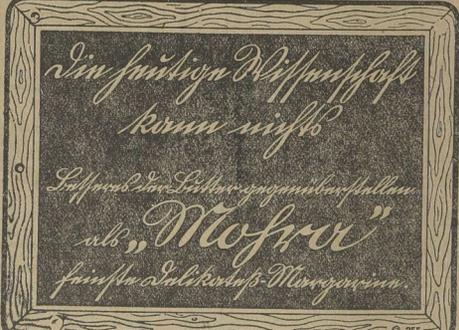 Die heutige Wissenschaft
kann nichts
Besseres der Butter gegenüberstellen
als „Mohra“
feinste Delikateß-Margarine.